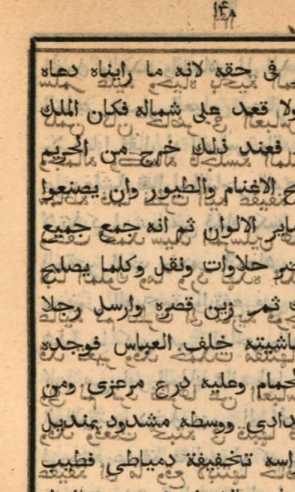 فى حقه لانه ما رايناه دهاه
ولا قعد على شماله فكان الملك
فعند ذلك خرج من الحريم
الاغنام والطيور وان يصنعوا
ساير الالوان ثم انه جمع جميع
حلاوات ونقل وكلما يصلح
ثم زين قصره وارسل رجلا
ماشيته خلف العباس فوجده
حمام وعليه درع مرعزى ومن
دادى ووسطه مشدود بمنديل
راسه تخفيفة دمياطى فطيب